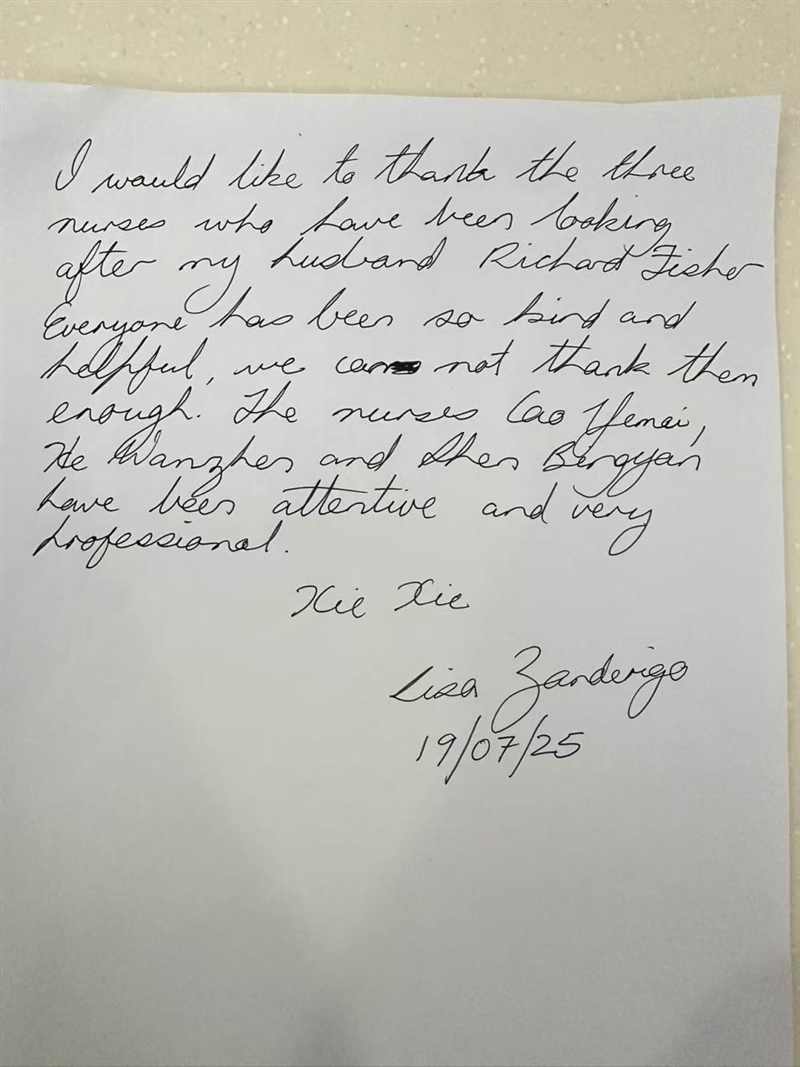 I would like to thank the three
nurses who have been looking
after my husband Richard Fisher
Everyone has been so kind and
helpful, we can not thank them
enough. The nurses Cao Yemei,
He Wanzhen and Shen Bingyan
have been attentive and very
professional.
Xie Xie
Lisa Zanderigo
19/07/25